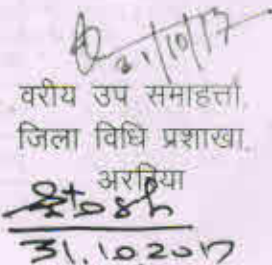 31/10/17
वरीय उप समाहर्त्ता,
जिला विधि प्रशाखा,
अररिया
31.10.2017